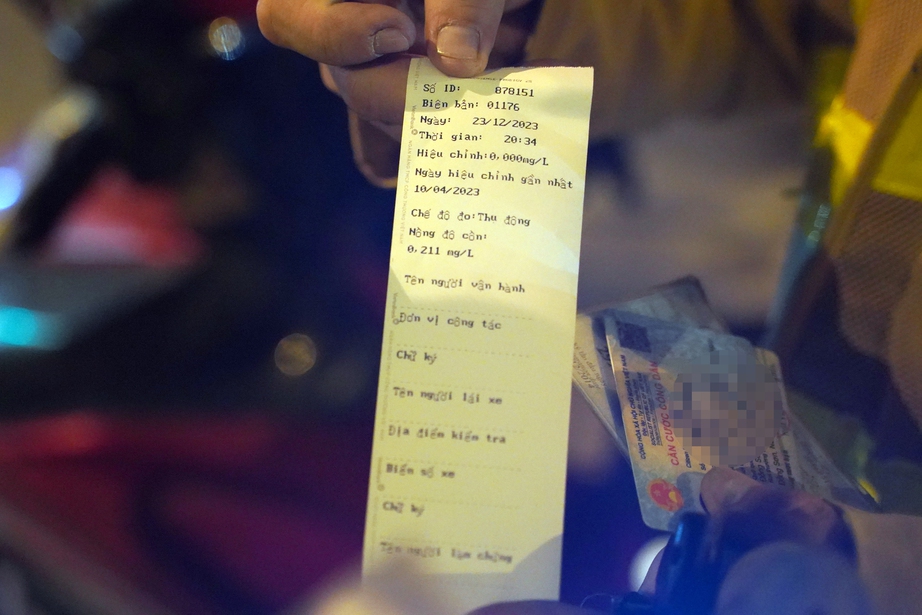 Số ID: 878151
Biên bản: 01176
Ngày: 23/12/2023
Thời gian: 20:34
Hiệu chỉnh:0,000mg/L
Ngày hiệu chỉnh gần nhất
10/04/2023
Chế độ đo:Thụ động
Nồng độ cồn:
0,211 mg/L
Tên người vận hành
Đơn vị công tác
Chữ ký
Tên người lái xe
Địa điểm kiểm tra
Biển số xe
Chữ ký
Tên người làm chứng
CỘNG HÒA XÃ HỘI CHỦ NGHĨA VIỆT NAM
CĂN CƯỚC CÔNG DÂN